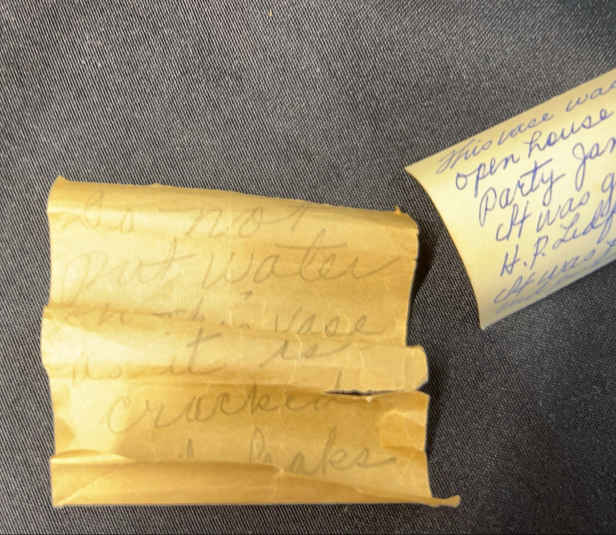 Do not
put water
in this vase
as it is
cracked
leaks
This vase was
open house
Party Jan
It was g
H. P. Lidd
It was